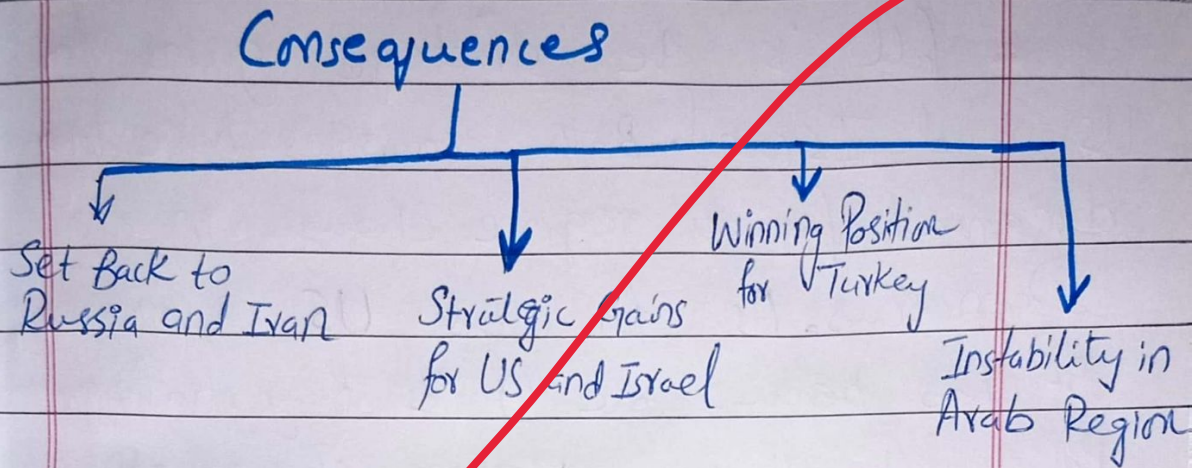 Consequences
Set Back to
Russia and Iran
Stratgic Gains
for US and Israel
Winning Position
for Turkey
Instability in
Arab Region